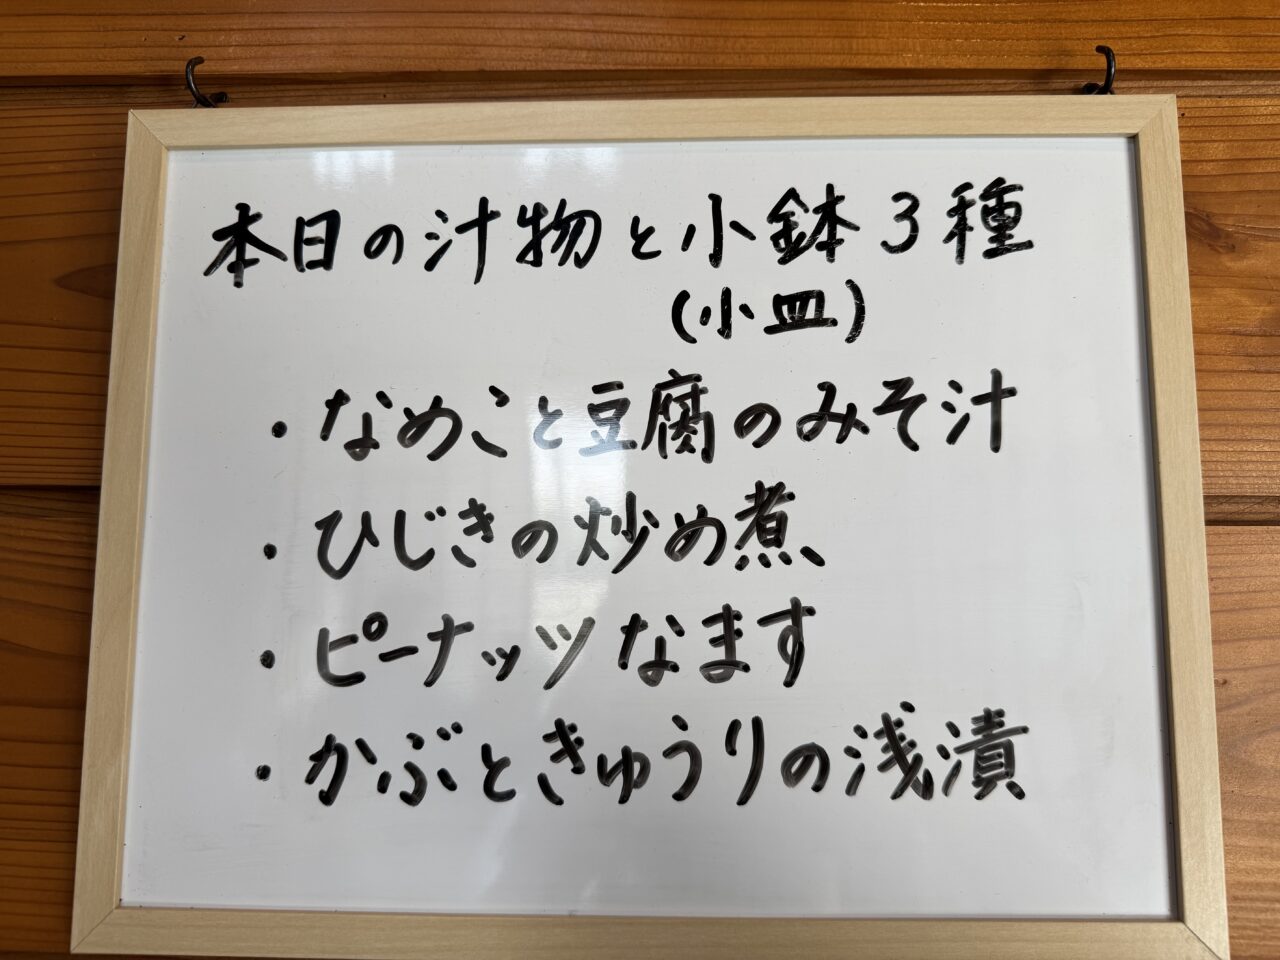 本日の汁物と小鉢3種
(小皿)
・なめこと豆腐のみそ汁
・ひじきの炒め煮
・ピーナッツなます
・かぶときゅうりの浅漬